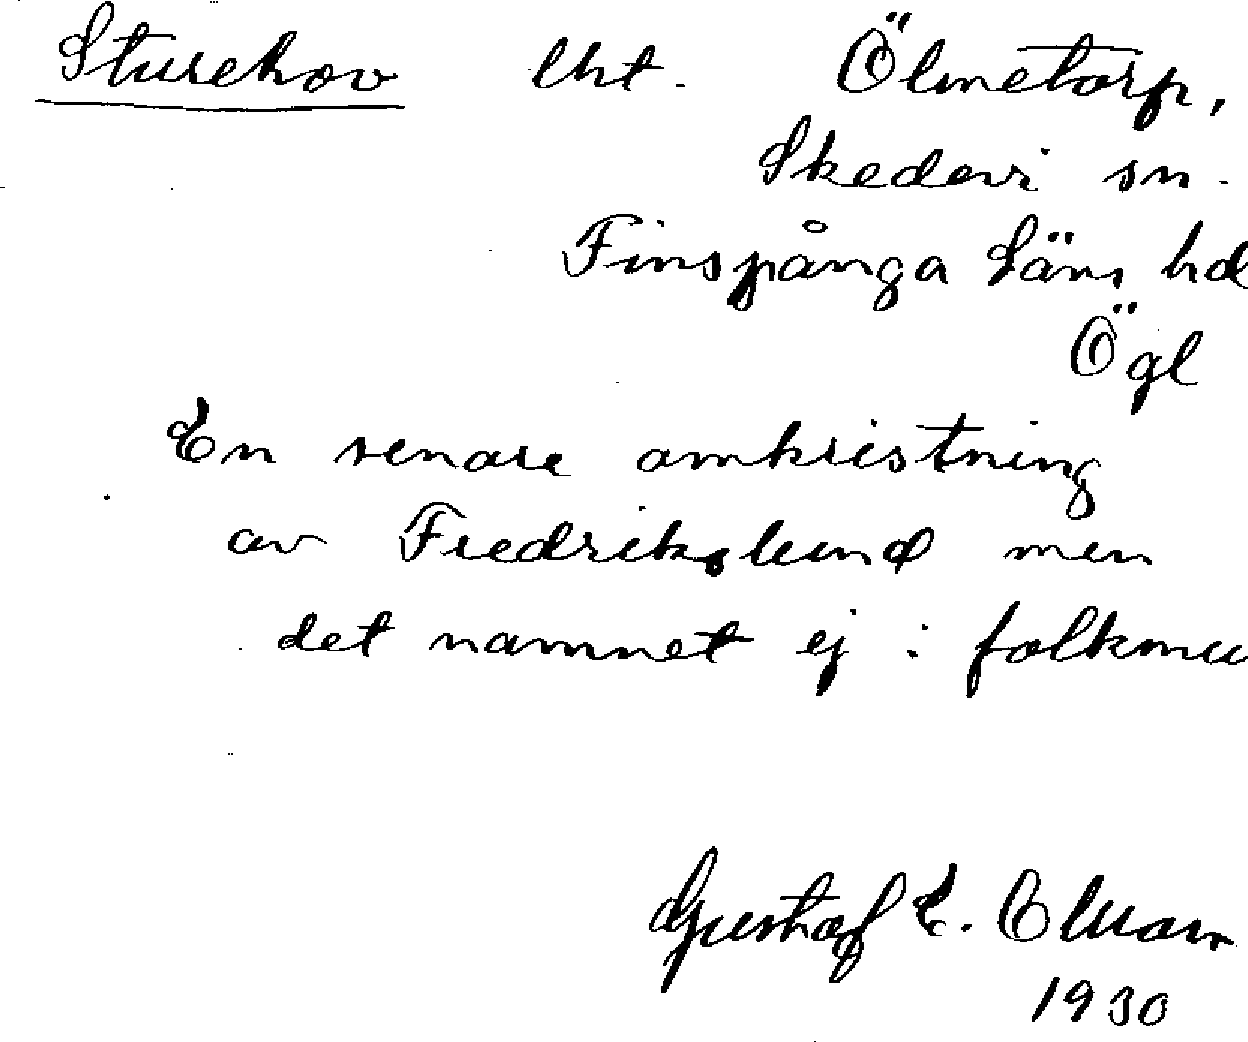 Sturehov lht. Ölmetorp,
Skedevi sn.
Finspånga läns hd
Ögl
En senare omkristning
av Fredrikslund men
det namnet ej i folkmu
Gustaf E.
1930